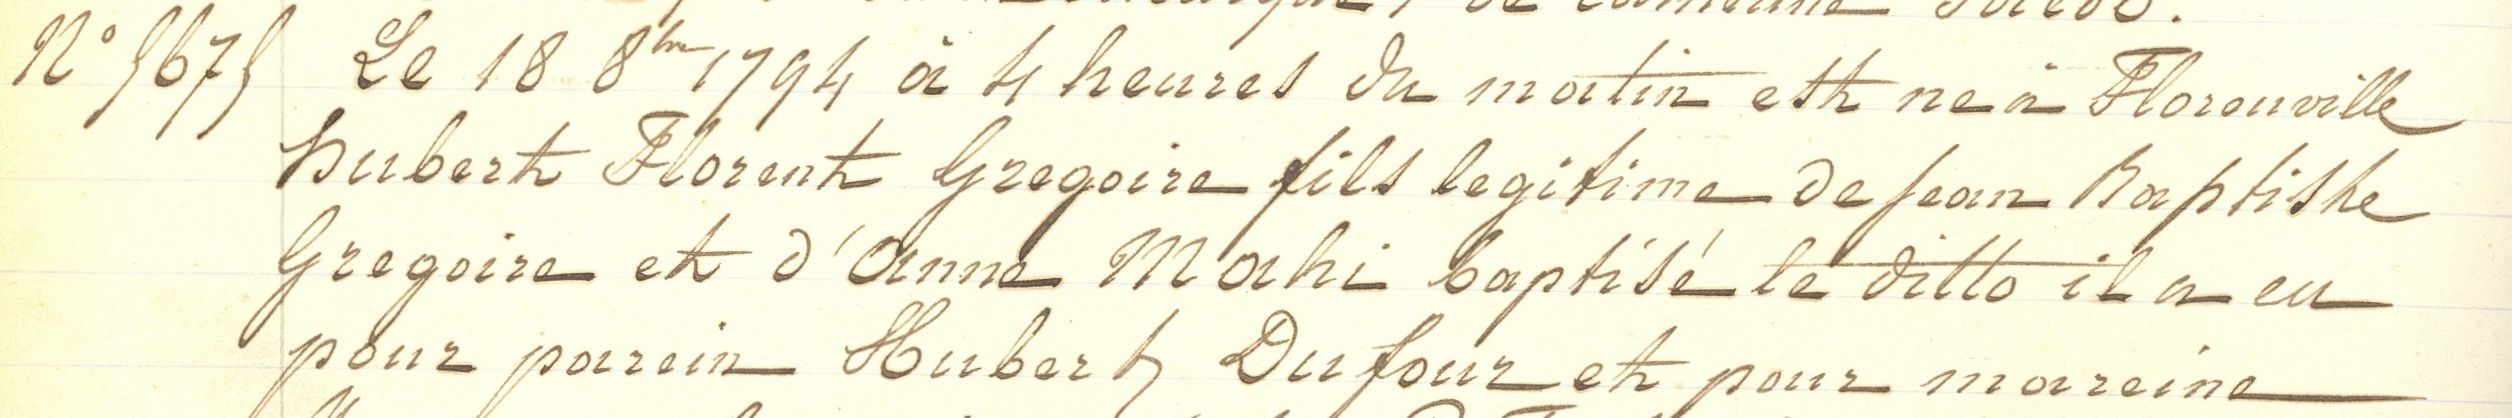 N° 567 Le 18 8bre 1794 à 4 heures du matin est né à Florenville
hubert Florent Gregoire fils legitime de Jean Baptiste
Gregoire et d'anne Mahi baptisé le ditto il a eu
pour parein Hubert Dufour et pour mareine